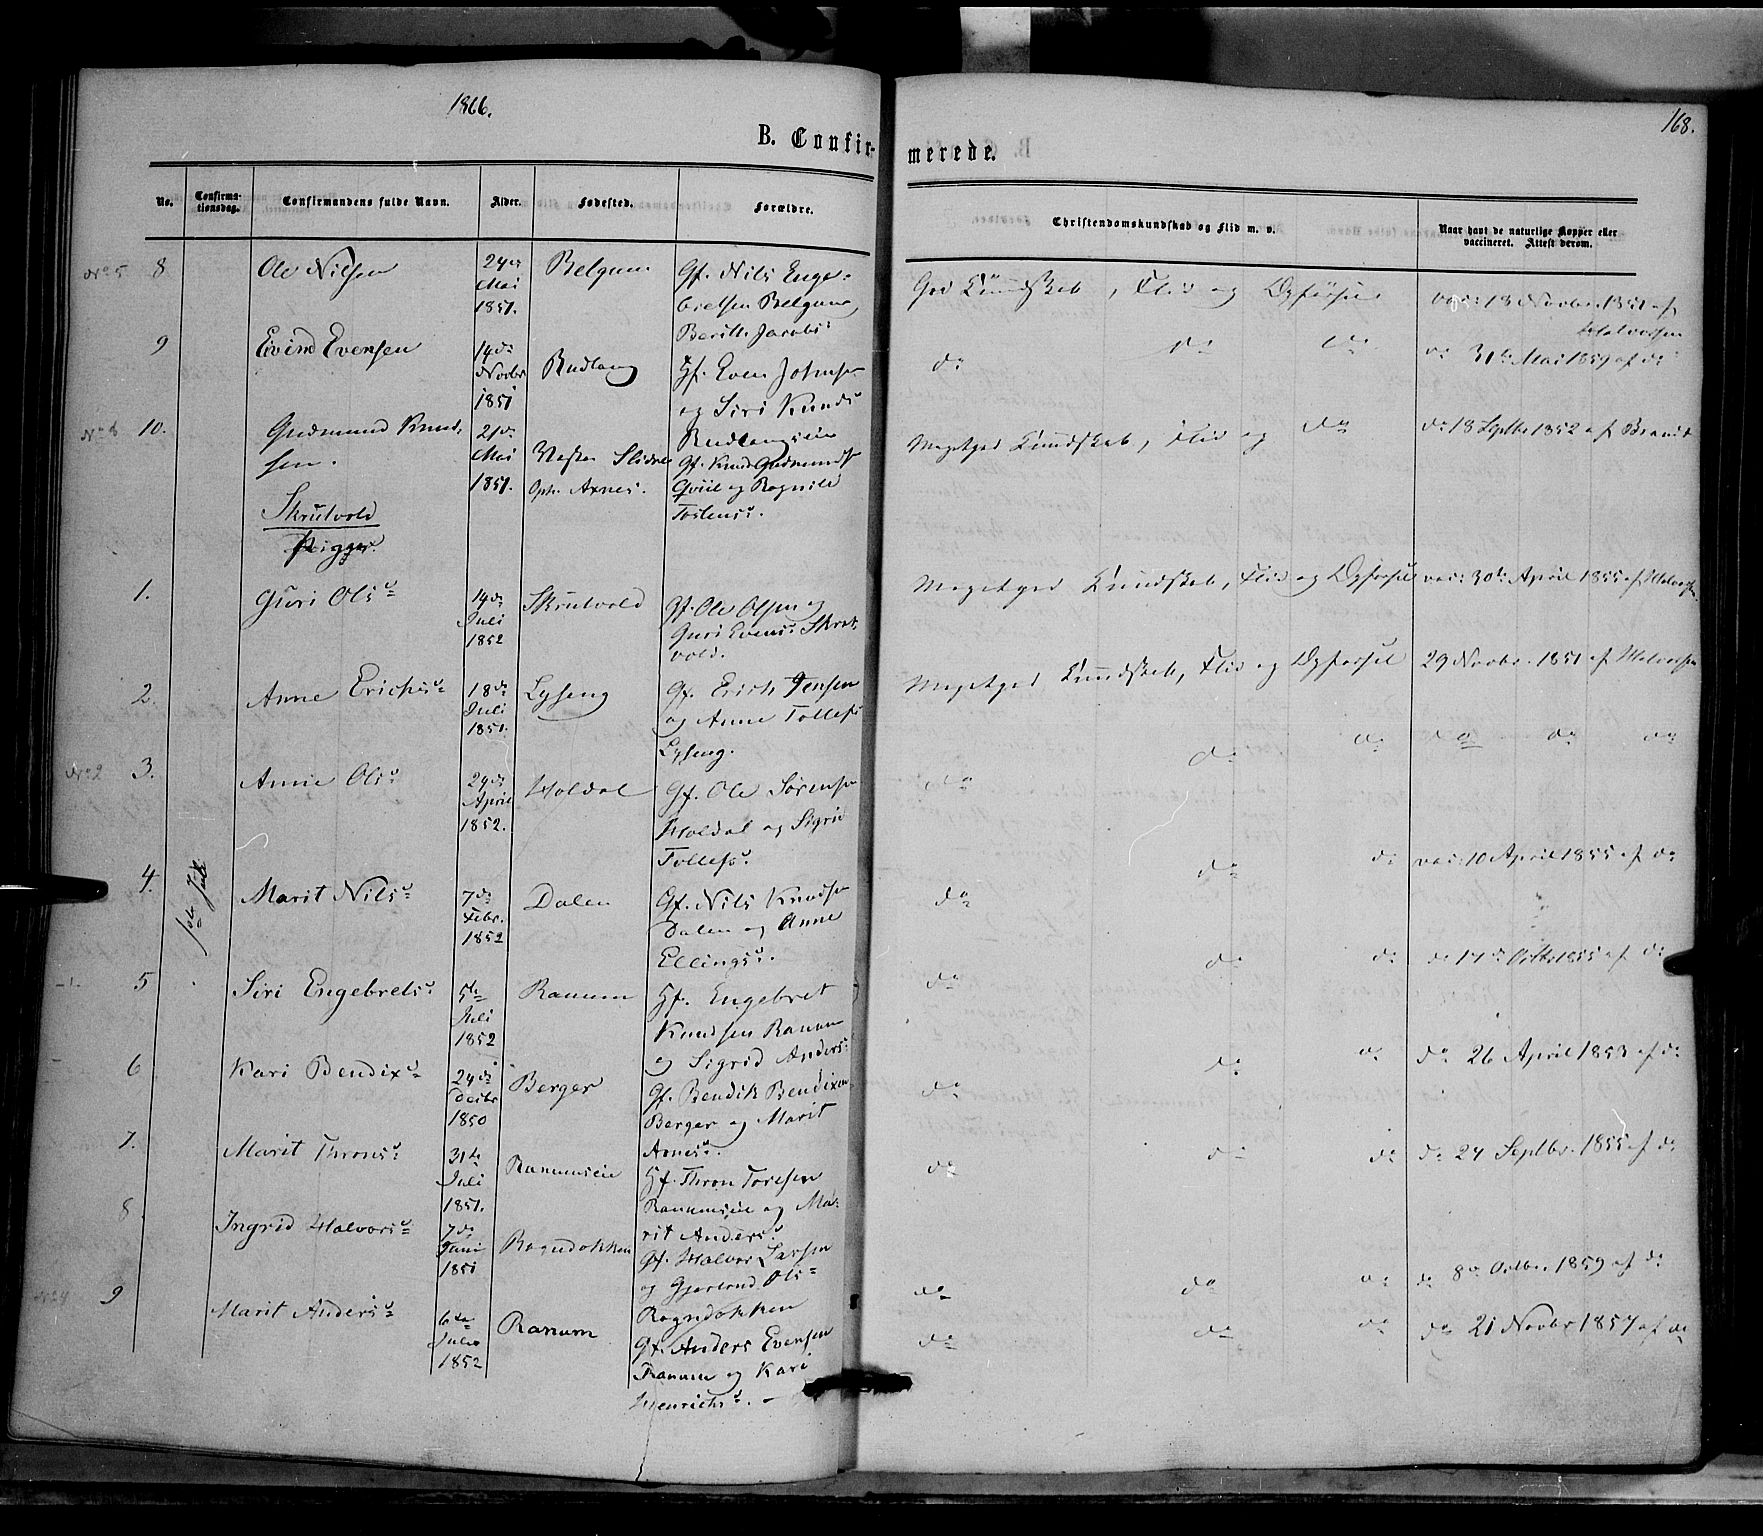 1866.
168.
B. Confir-
merede.
No. Confirma-tionsdag. Confirmandens fulde Navn. Alder. Fødested. Forældre.
Christendomskundskab og Flid m. v. Naar havt de naturlige Kopper eller vaccineret. Attest derom.
No 5 8 Ole Nilsen 24de Belgum Gf. Nils Enge-
Mai brelsen Belgum,
1851. Berith Jacobs:
God Kundskab, Flid og Opførsel vac: 18 Novbr. 1851 af
Halvorsen
9 Eivind Evensen 14de Rudlang Gf. Even Johnsen
Novbr og Siri Knuds
1851 Rudlangseie
do do do do 31te Mai 1859 af do
10. Gudmund Knud- 21de Vestre Slidre Gf. Knud Gudmunds
sen. Mai Oph. Axnes. Qviil og Ragnild
1851. Tostens:.
Megetgod Kundskab, Flid og do do 18 Septbr 1852 af Brandt
Skrutvold
Piger.
1. Guri Ols: 14de Skrutvold Gf. Ole Olsen og
Juli Guri Evens: Skrut-
1852 vold.
Megetgod Kundskab, Flid og Opførsel vac: 30te April 1855 af Halvorsen
2. Anne Erichs: 18de Lyseng Gf. Erich Jensen
Juli og Anne Tollefs:
1851. Lyseng.
Megetgod Kundskab, Flid og Opførsel 29 Novbr. 1851 af Halvorsen
No 2 3. Anne Ols: Holdal Gf. Ole Sørensen
April Holdal og Sigrid
1852. Tollefs:.
do do do do do do
1ste Juli
4. Marit Nils: 7de Dalen Gf. Nils Knudsen
Febr. Dalen og Anne
1852 Ellings:.
do do do vac: 10 April 1855 af do
5 Siri Engebrets: 5te Ranum Gf. Engebret
Juli Knudsen Ranum
1852 og Sigrid Anders:
do do do do 17de Octbr 1855 af do
6 Kari Bendix: 24de Berger Gf. Bendik Bendixen
Decbr Berger og Marit
1850 Arnes:.
do do do do 26 April 1853 af do
7. Marit Throns: 31te Ranumseie Gf. Thron Toresen
Juli Ranumseie og Ma-
1851. rit Anders:
do do do do 24 Septbr. 1855 af do
8. Ingrid Halvors: 7de Rogndokken Gf. Halvor Larsen
Juni og Gjertrud Ols:
1851 Rogndokken
do do do do 8de Octbr. 1859 af do
No 4 9 Marit Anders: 6te Ranum Gf. Anders Evensen
Julie Ranum og Kari
1852 Henrichs:. -
do do do do 21 Novbr 1857 af do